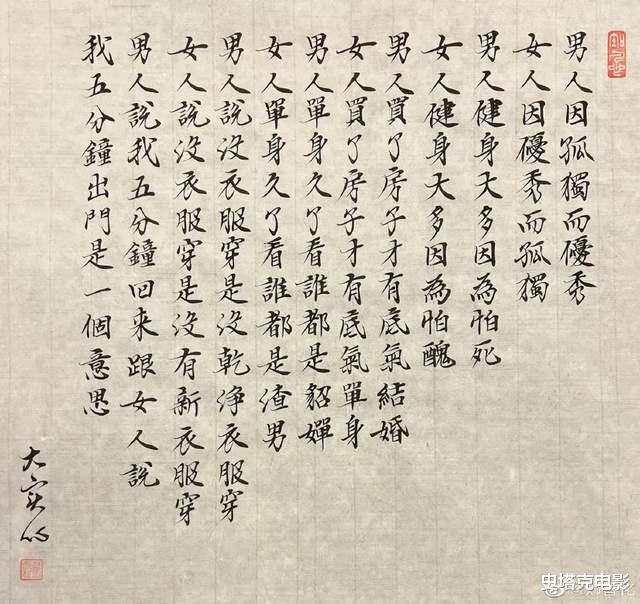 男人因孤獨而優秀
女人因優秀而孤獨
男人健身大多因為怕死
女人健身大多因為怕醜
男人買了房子才有底氣結婚
女人買了房子才有底氣單身
男人單身久了看誰都是貂嬋
女人單身久了看誰都是渣男
男人說没衣服穿是没乾净衣服穿
女人說没衣服穿是没有新衣服穿
男人說我五分鐘回来跟女人說
我五分鐘出門是一個意思
大实话
史塔克电影